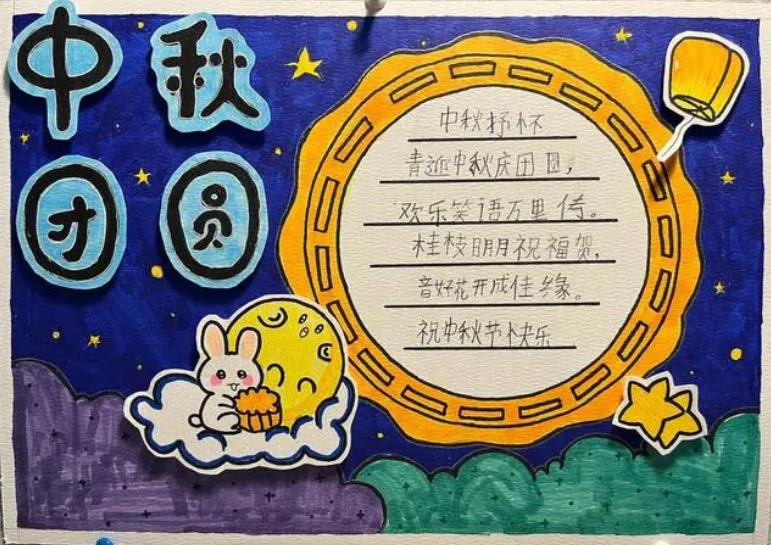 中秋
团圆
中秋抒怀
喜迎中秋庆团圆，
欢乐笑语万里传。
桂枝明月祝福贺，
音好花开成佳缘。
祝中秋节快乐